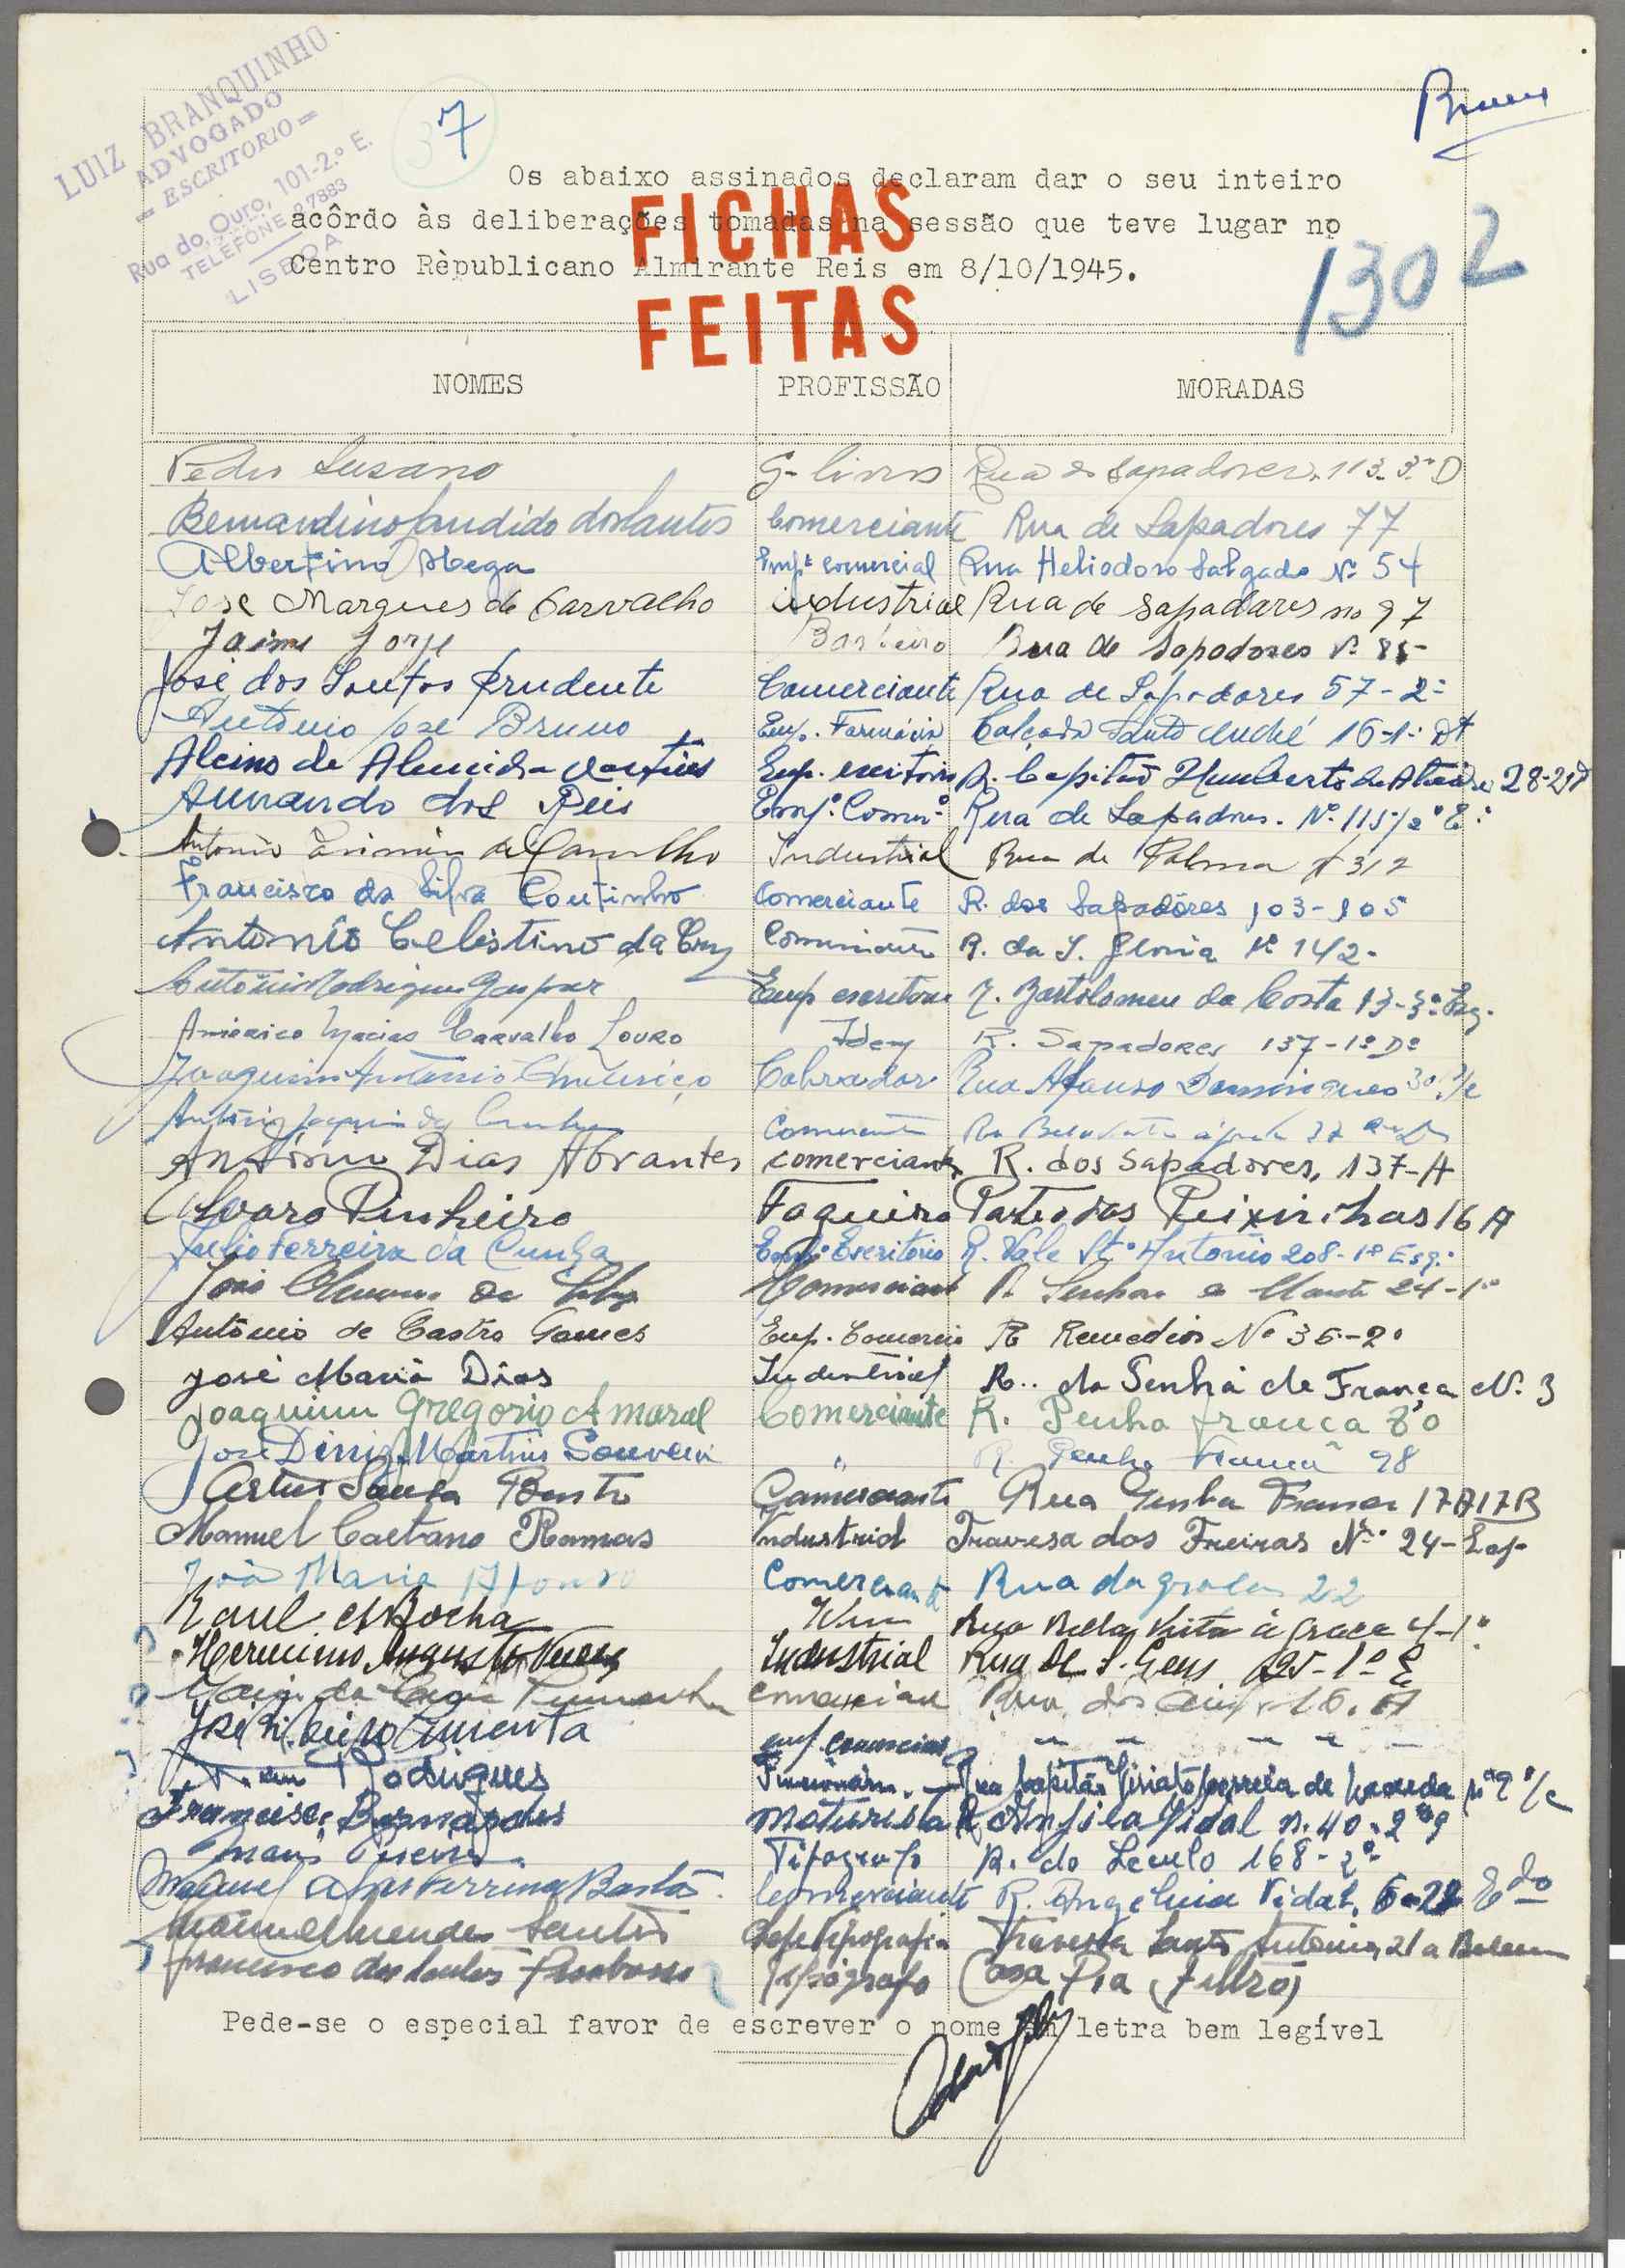 LUIZ BRANQUINHO
ADVOGADO
= ESCRITORIO =
Rua do Ouro, 101-2.º E.
TELEFONE 27883
LISBOA
37
Os abaixo assinados declaram dar o seu inteiro
acôrdo às deliberações tomadas na sessão que teve lugar no
Centro Rèpublicano Almirante Reis em 8/10/1945.
FICHAS
FEITAS
1302
NOMES PROFISSÃO MORADAS
Pedro Lusano G- livros Rua de Sapadores 113-3º D
Bernardino Candido dos Santos Comerciante Rua de Sapadores 77
Albertino Empº comercial Rua Heliodoro Salgado Nº 54
José Marques de Carvalho industrial Rua de Sapadores no 97
Jaime Jorge Barbeiro Rua de Sapadores Nº 85
José dos Santos Prudente Comerciante Rua de Sapadores 57-2º
Antonio José Bruno Emp. Farmácia Calçada Santo André 16-1º Dt
Alcino de Almeida Martins Emp. escritorio R. Capitão Humberto de Ataide 28-2º D
Armando dos Reis Empº. Comerº Rua de Sapadores. Nº 115-2º E
Antonio de Carvalho Industrial Rua de Palma 312
Francisco da Silva Coutinho comerciante R. dos Sapadôres 103-105
António Celestino da Cruz Comerciante R. da S. Gloria Nº 142-
António Rodrigues Gaspar Emp escritorio R. Bartolomeu da Costa 13-3º Esq.
Américo Macias Carvalho Louro Idem R. Sapadores 137-1º Dº
Joaquim António Cobrador Rua Afonso Domingues 30 r/c
António Joaquim da Cunha Comerciante
António Dias Abrantes comerciante R. dos Sapadores, 137-A
Alvaro Pinheiro Faqueiro Pateo das Peixinhas 16 A
Julio Ferreira da Cunha Empº Escritório R. Vale Stº António 208-1º Esq.
João da Silva Comerciante R. Senhora do Monte 24-1º
António de Castro Gomes Emp. Comercio R Remedios Nº 36-2º
José Maria Dias Industrial R. da Penha de França Nº 3
Joaquim Gregorio Amaral Comerciante R. Penha frança 80
José Diniz Martins " R. Penha França 98
Artur Sousa Bento Comerciante Rua Penha França 17A 17B
Manuel Caetano Ramos Industrial Travessa das Freiras Nº 24-
João Maria Afonso Comerciante Rua da graça 22
Raul Rocha Rua Bella Vista á graça 4-1º
Herminio Augusto Nunes Industrial Rua de S. Gens 25-1º E
comerciante Rua dos 16. A
José Ribeiro Pimenta emp. comercial " " " " "
Rodrigues Funcionário Rua Capitão Viriato Correia de Lacerda nº 9 r/c
Francisco Bernardes motorista R Angela Vidal n. 40-2º
Mário Pereira Tipografo R. do Seculo 168-2º
Manuel Ferreira Bastos Comerciante R. Angelina Vidal, Edo
Manuel Mendes Santos Chefe Tipografia Travessa Santo Antonio, 21 a Belem
Francisco dos Santos Tipógrafo Casa Pia
Pede-se o especial favor de escrever o nome em letra bem legível